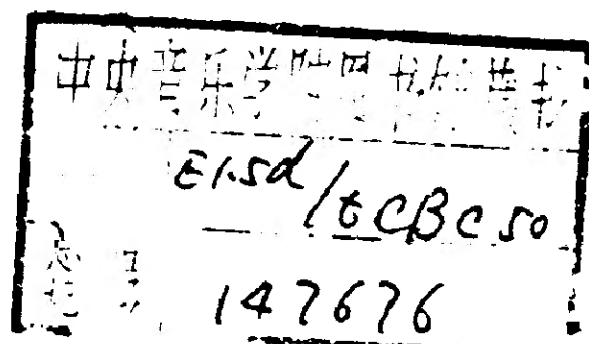 中央音乐学院图书馆藏书
E1.5d/tCBC50
总 号 147676